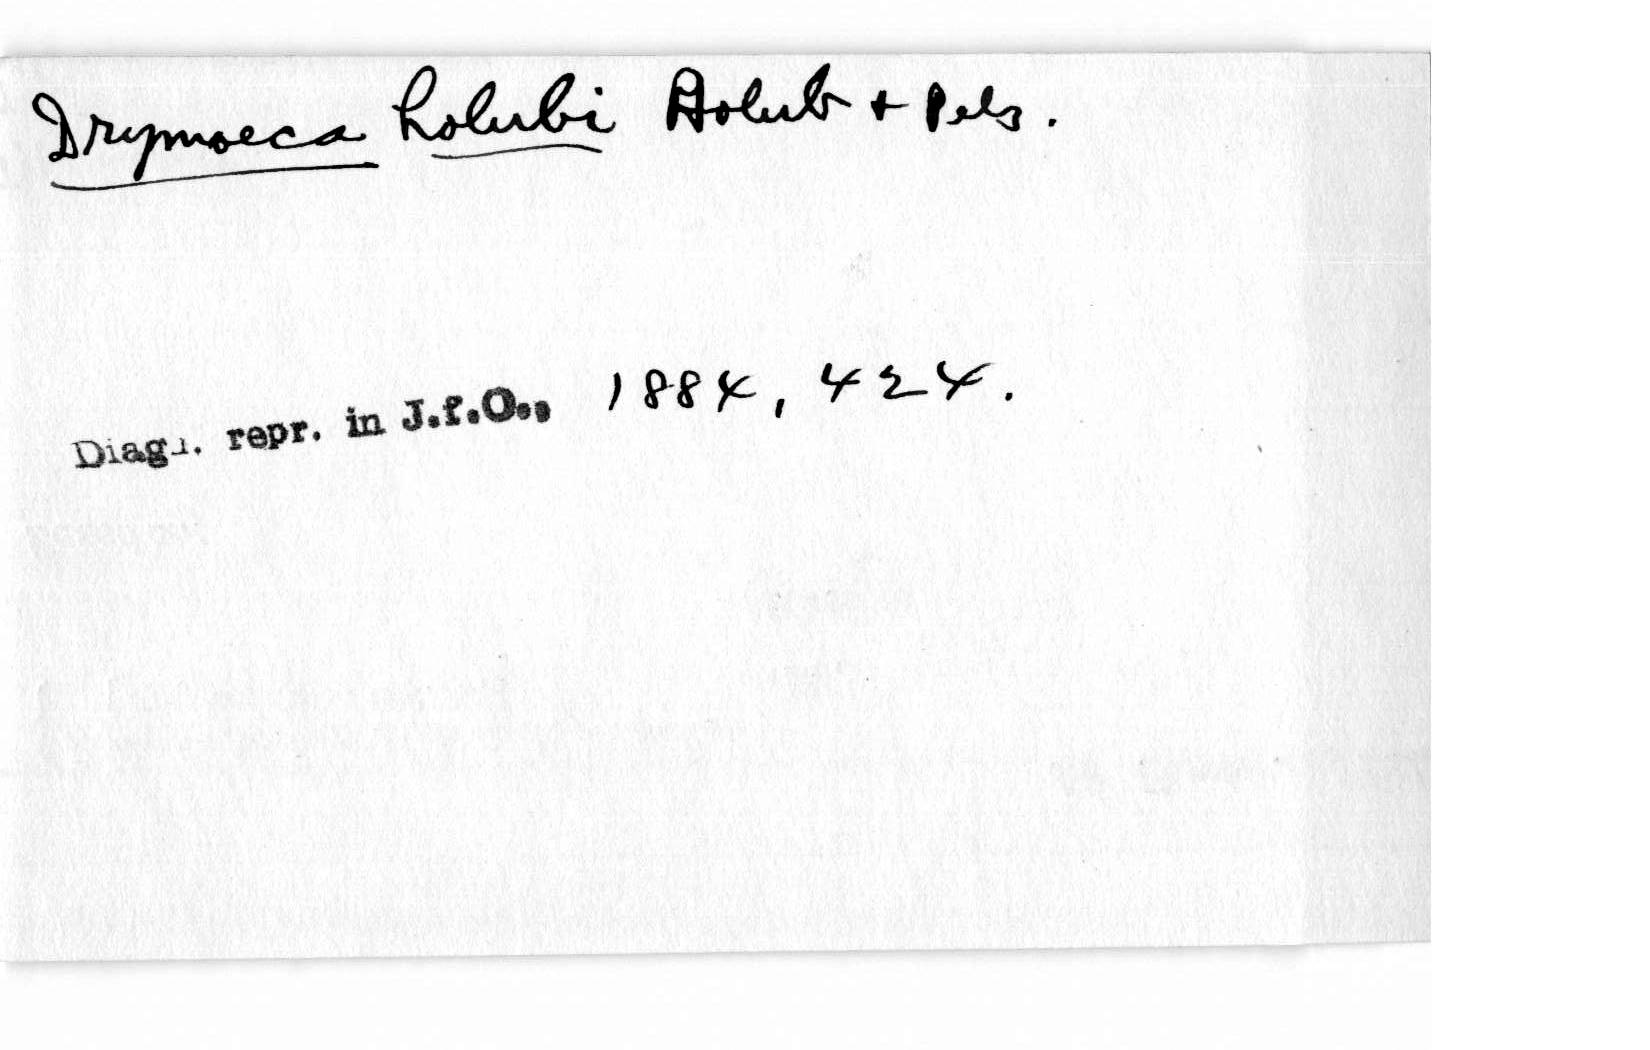 Drymoeca holubi Holub + Pelz.
Diagn. repr. in J.f.O., 1884, 424.